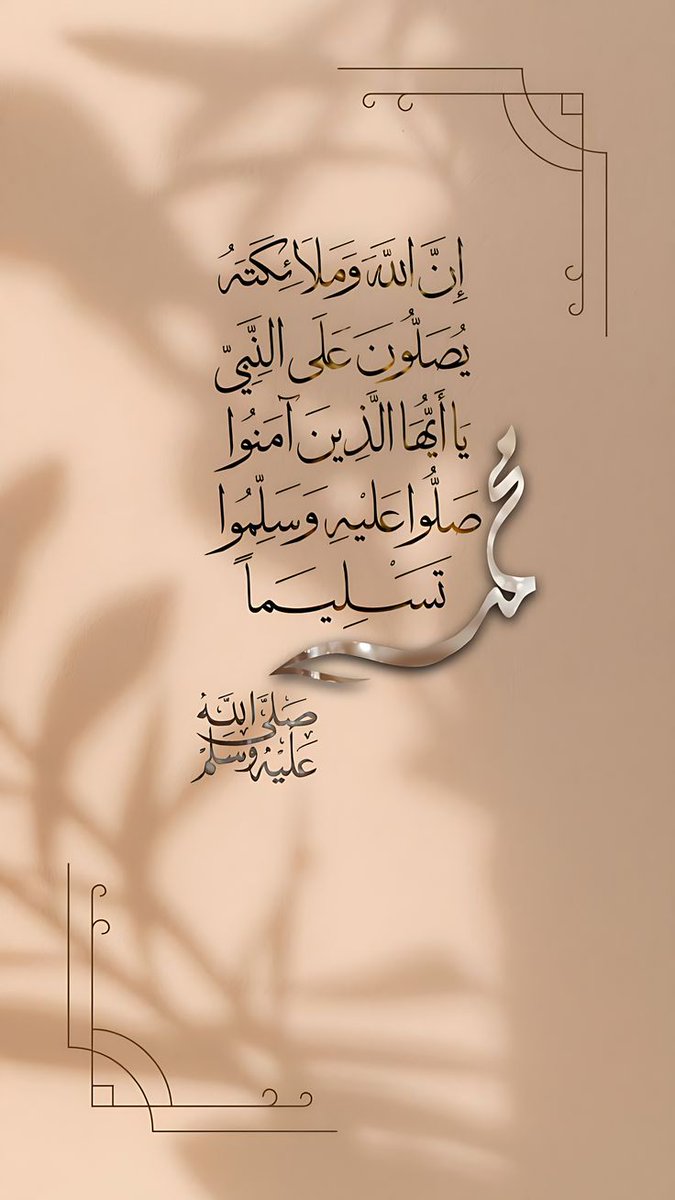 إِنَّ اللَّهَ وَمَلَائِكَتَهُ
يُصَلُّونَ عَلَى النَّبِيِّ
يَا أَيُّهَا الَّذِينَ آمَنُوا
صَلُّوا عَلَيْهِ وَسَلِّمُوا
تَسْلِيمَاً
محمد
صَلَّى اللَّهُ
عَلَيْهِ وَسَلَّمَ